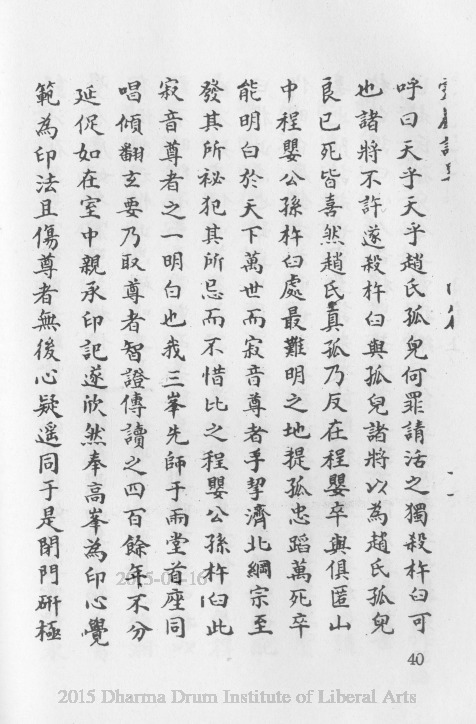 呼曰天乎天乎趙氏孤兒何罪請活之獨殺杵臼可
也諸將不許遂殺杵臼與孤兒諸將以為趙氏孤兒
良已死皆喜然趙氏真孤乃反在程嬰卒與俱匿山
中程嬰公孫杵臼處最難明之地提孤忠蹈萬死卒
能明白於天下萬世而寂音尊者手挈濟北綱宗至
發其所祕犯其所忌而不惜比之程嬰公孫杵臼此
寂音尊者之一明白也我三峯先師于兩堂首座同
唱傾翻玄要乃取尊者智證傳讀之四百餘年不分
延促如在室中親承印記遂欣然奉高峯為印心覺
範為印法且傷尊者無後心疑遥同于是閉門研極
40
2015-04-16
2015 Dharma Drum Institute of Liberal Arts